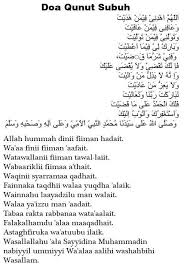 Doa Qunut Subuh
اَللّهُمَّ اهْدِنِىْ فِيْمَنْ هَدَيْتَ
وَعَافِنِى فِيْمَنْ عَافَيْتَ
وَتَوَلَّنِىْ فِيْمَنْ تَوَلَّيْتَ
وَبَارِكْ لِىْ فِيْمَا اَعْطَيْتَ
وَقِنِيْ شَرَّمَا قَضَيْتَ،
فَاِ نَّكَ تَقْضِىْ وَلاَ يُقْضَى عَلَيْكَ
وَاِ نَّهُ لاَ يَذِلُّ مَنْ وَالَيْتَ
وَلاَ يَعِزُّ مَنْ عَادَيْتَ
تَبَارَكْتَ رَبَّنَا وَتَعَالَيْتَ
فَلَكَ الْحَمْدُ عَلَى مَا قَضَيْتَ
وَاَسْتَغْفِرُكَ وَاَتُوْبُ اِلَيْكَ
وَصَلَّى اللهُ عَلَى سَيِّدِنَا مُحَمَّدٍ النَّبِيِّ اْلاُمِّيِّ وَعَلَى آلِهِ وَصَحْبِهِ وَسَلَّمَ
Allah hummah dinii fiiman hadait.
Wa'aa finii fiiman 'aafait.
Watawallanii fiiman tawal laiit.
Wabaariklii fiimaa a'thait.
Waqinii syarramaa qadhait.
Fainnaka taqdhii walaa yuqdha 'alaik.
Wainnahu laayadzilu man walait.
Walaa ya'izzu man 'aadait.
Tabaa rakta rabbanaa wata'aalait.
Falakalhamdu 'alaa maaqadhait.
Astaghfiruka wa'atuubu ilaik.
Wasallallahu 'ala Sayyidina Muhammadin
nabiyyil ummiyyi Wa'alaa aalihi washahbihi
Wasallam.